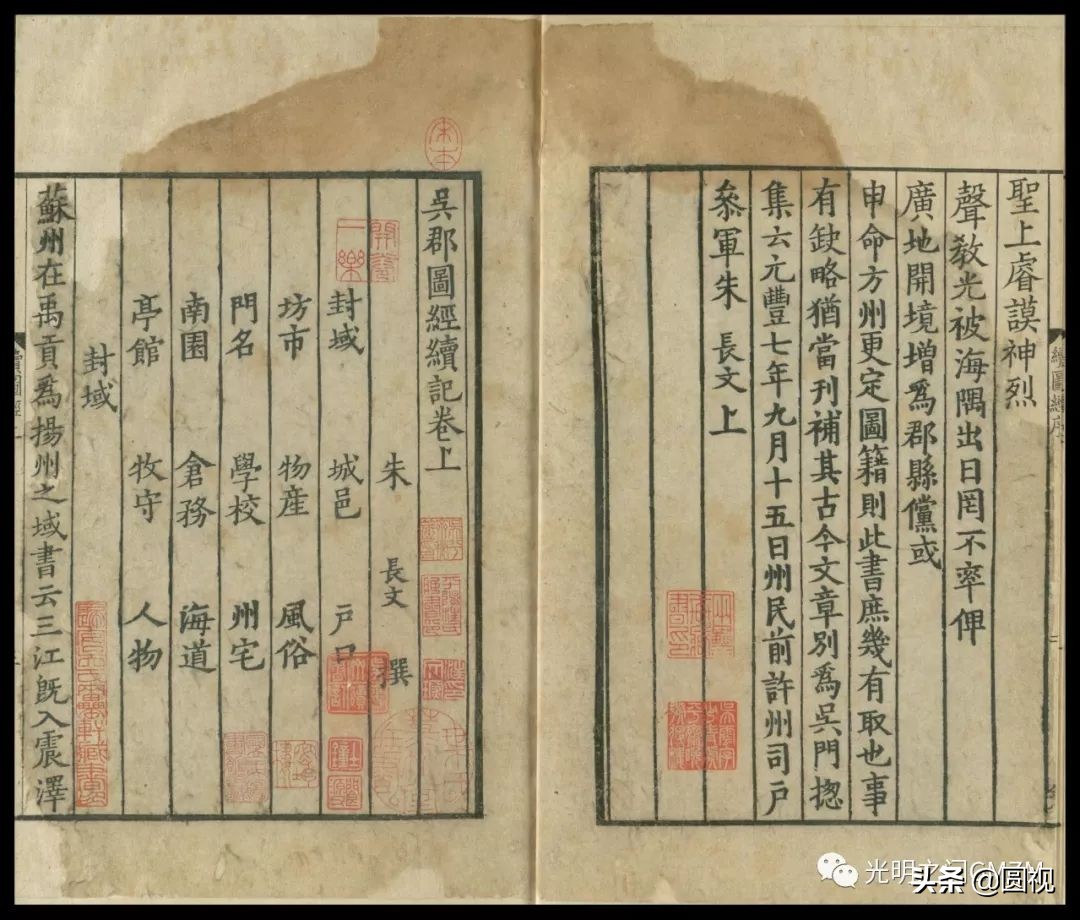 聖上睿謨神烈
聲教光被海隅出日罔不率俾
廣地開境增爲郡縣儻或
申命方州更定圖籍則此書庶幾有取也事
有缺略猶當刊補其古今文章別爲吳門揔
集云元豐七年九月十五日州民前許州司户
叅軍朱 長文 上
吳郡圖經續記卷上
朱 長文 撰
封域 城邑 户口
坊市 物産 風俗
門名 學校 州宅
南園 倉務 海道
亭館 牧守 人物
封域
蘇州在禹貢爲揚州之域書云三江旣入震澤
續圖經序
續圖經
宋本
開卷
一樂
光明之门
头条 @圆视